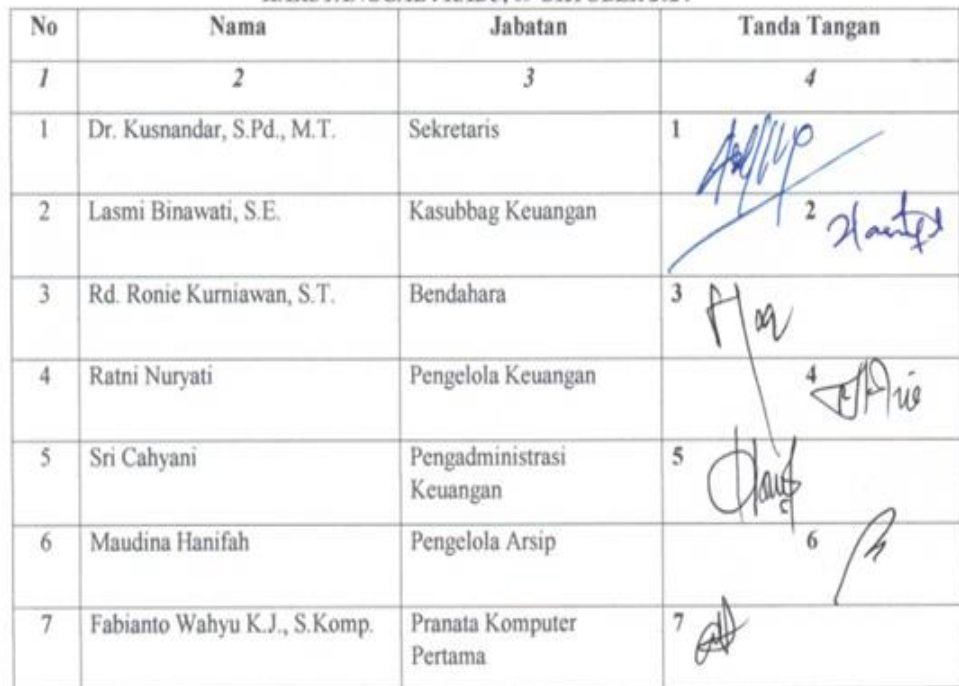 No Nama Jabatan Tanda Tangan
1 2 3 4
1 Dr. Kusnandar, S.Pd., M.T. Sekretaris 1
2 Lasmi Binawati, S.E. Kasubbag Keuangan 2
3 Rd. Ronie Kurniawan, S.T. Bendahara 3
4 Ratni Nuryati Pengelola Keuangan 4
5 Sri Cahyani Pengadministrasi 5
Keuangan
6 Maudina Hanifah Pengelola Arsip 6
7 Fabianto Wahyu K.J., S.Komp. Pranata Komputer 7
Pertama